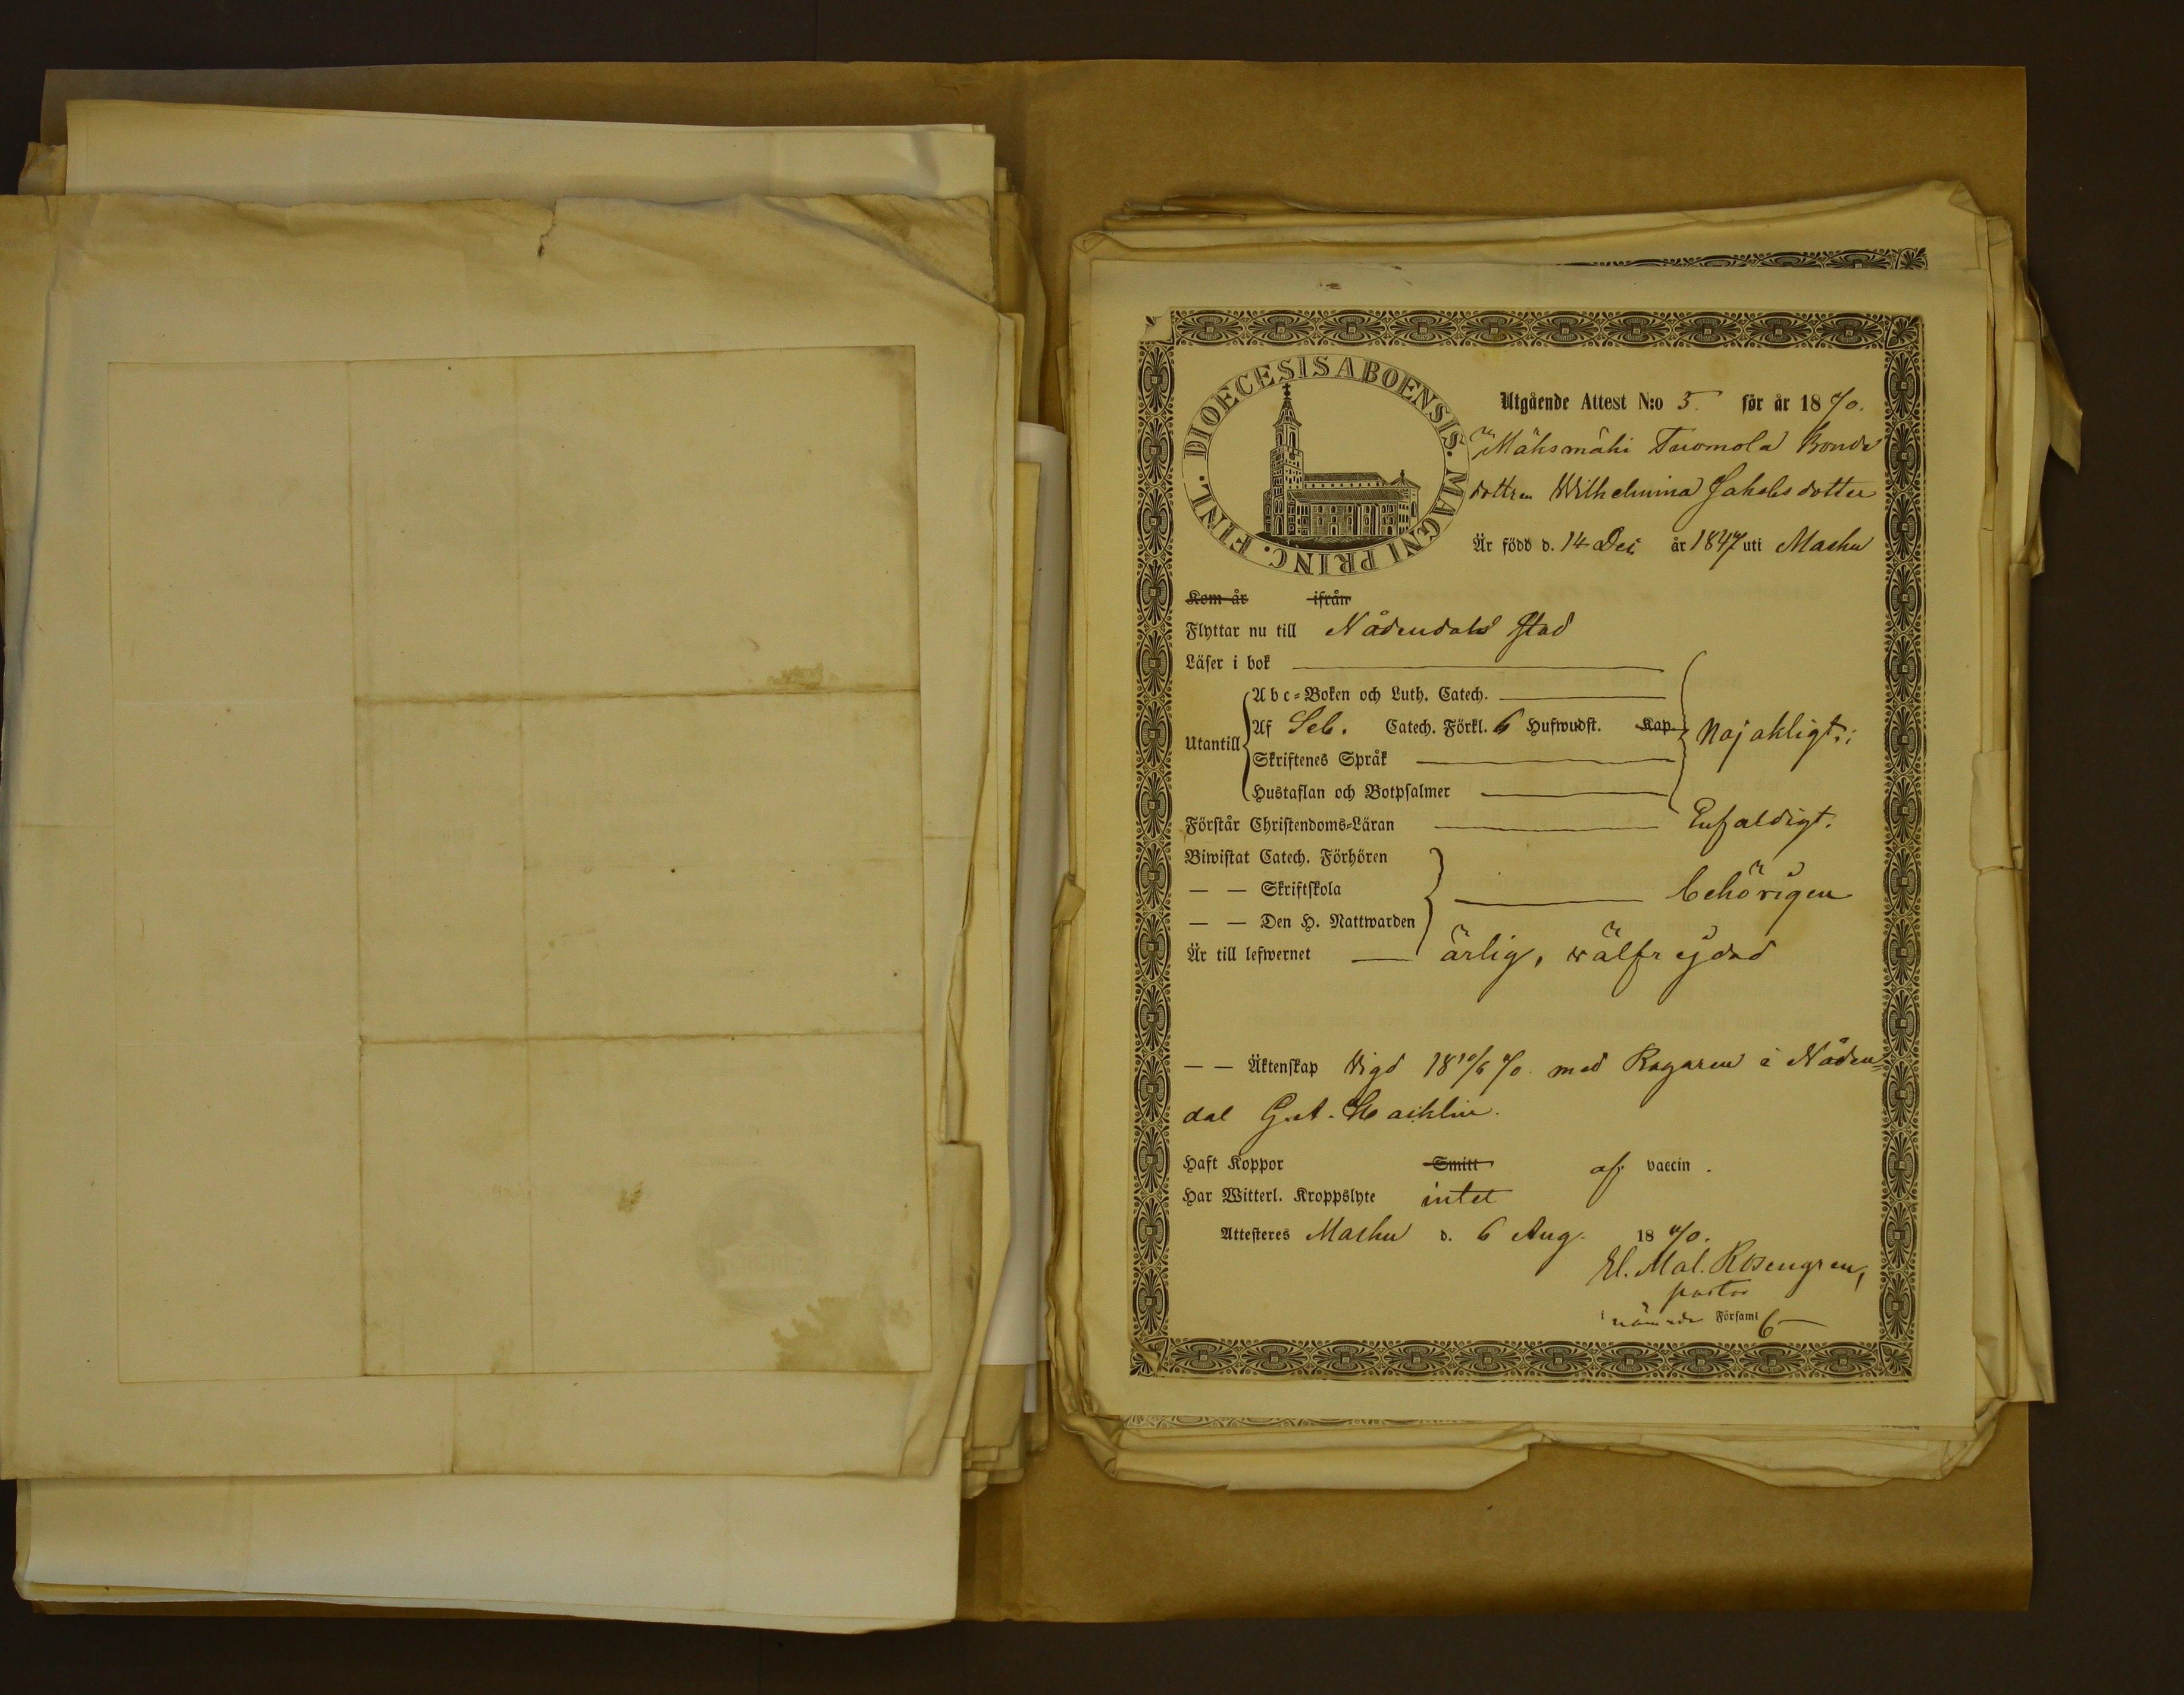 DIOECESIS ABOENSIS. MAGNI PRINC. FINL.
Utgående Attest N:o 5. för år 1870.
Mähsmähi Tuomola Bonde
dottren Wilhelmina Jakobsdotter
Är född d. 14 Dec år 1847 uti Masku
Kom år ifrån
Flyttar nu till Nådendals Stad
Läser i bok
Abc-Boken och Luth. Catech.
Utantill Af Seb. Catech. Förkl. 6 Hufwudst. Kap. Nöjakligt.
Skriftenes Språk
Hustaflan och Botpsalmer
Förstår Christendoms-Läran Enfaldigt.
Biwistat Catech. Förhören
— — Skriftskola behörigen
— — Den H. Nattwarden
Är till lefwernet ärlig, wälfrejdad
— — Äktenskap Vigd 18 10/6 70. med Ragaren i Nåden=
dal G. A.
Haft Koppor Smitt af vaccin.
Har Witterl. Kroppslyte intet
Attesteres Masku d. 6 Aug. 1870.
El. Mal. Rosengren,
pastor
i nämnde Församl